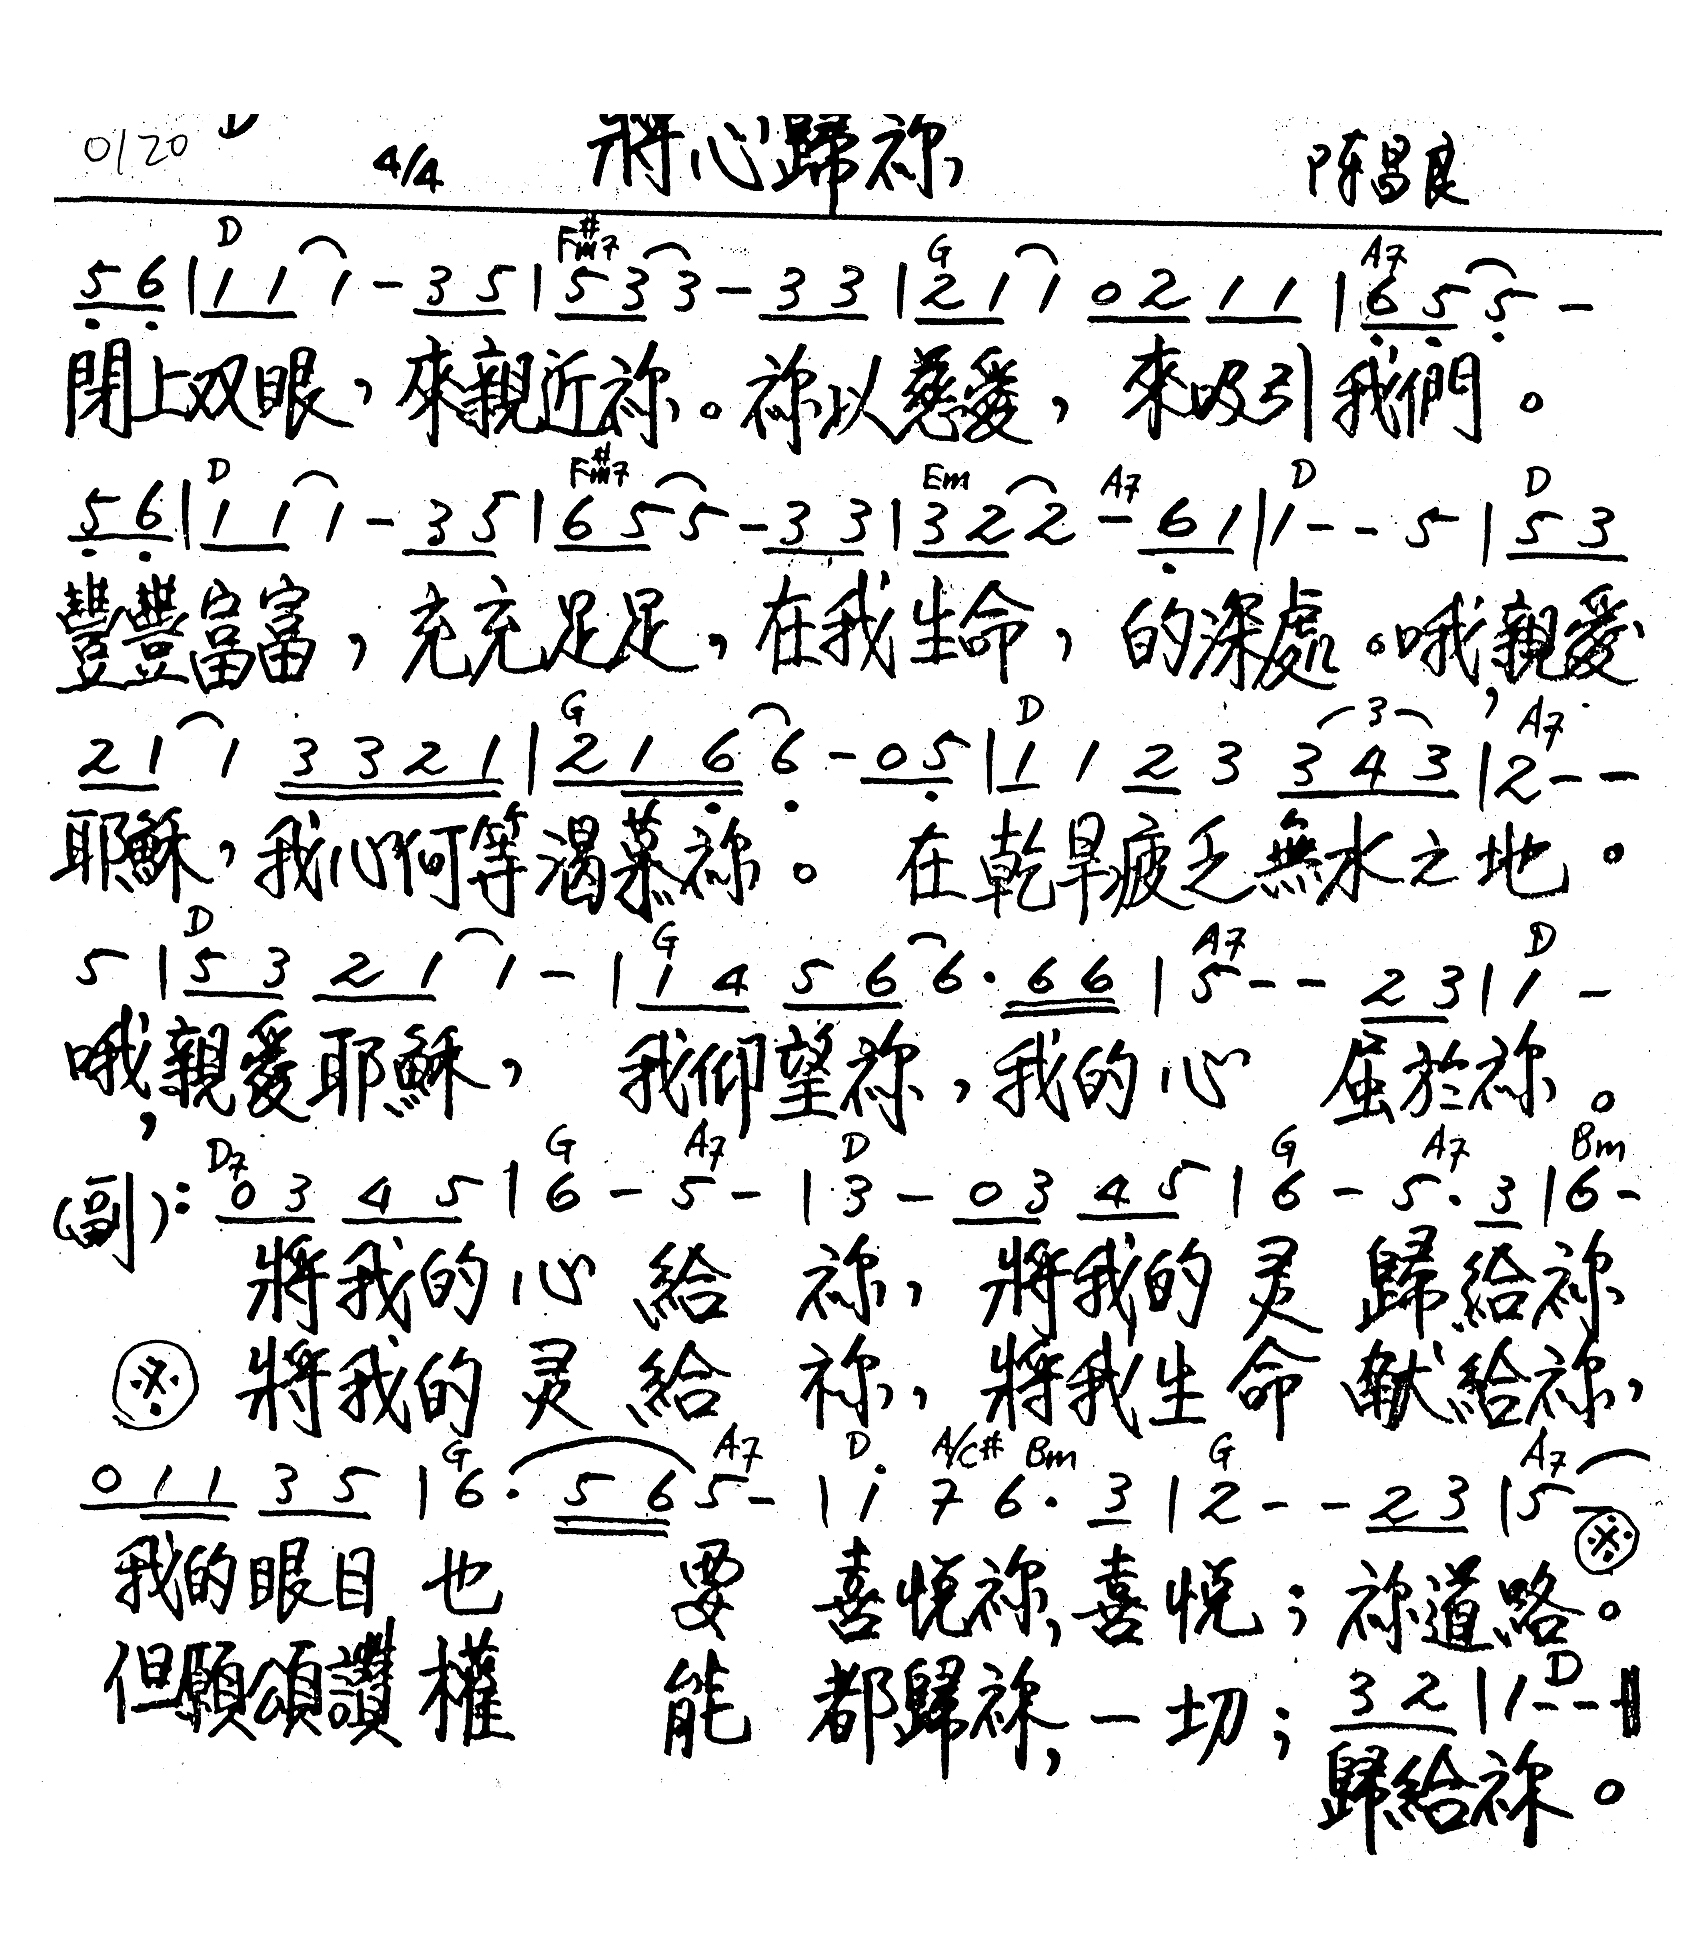 0120 D 4/4 將心歸祢 陈昌良
D F#m7 G A7
5 6 | 1 1 1 - 3 5 | 5 3 3 - 3 3 | 2 1 1 0 2 1 1 | 6 5 5 -
閉上双眼，來親近祢。祢以慈愛，來吸引我們。
D F#m7 Em A7 D D
5 6 | 1 1 1 - 3 5 | 6 5 5 - 3 3 | 3 2 2 - 6 1 || 1 - - 5 | 5 3
豐豐富富，充充足足，在我生命，的深處。哦，親愛
G D 3 A7
2 1 1 3 3 2 1 | 2 1 6 6 - 0 5 | 1 1 2 3 3 4 3 | 2 - -
耶穌，我心何等渴慕祢。在乾旱疲乏無水之地。
D G A7 D
5 | 5 3 2 1 1 - | 1 4 5 6 6 · 6 6 | 5 - - 2 3 | 1 -
哦，親愛耶穌，我仰望祢，我的心屈於祢。
D7 G A7 D G A7 Bm
(副): 0 3 4 5 | 6 - 5 - | 3 - 0 3 4 5 | 6 - 5 · 3 | 6 -
將我的心給祢，將我的灵歸給祢
※ 將我的灵給祢，將我生命献給祢，
G A7 D A/C# Bm G A7
0 1 1 3 5 | 6 · 5 6 5 - | i 7 6 · 3 | 2 - - 2 3 | 5 - ※
我的眼目也要喜悅祢，喜悅；祢道路。
但願頌讚權能都歸祢，一切；
D
3 2 | 1 - - -||
歸給祢。